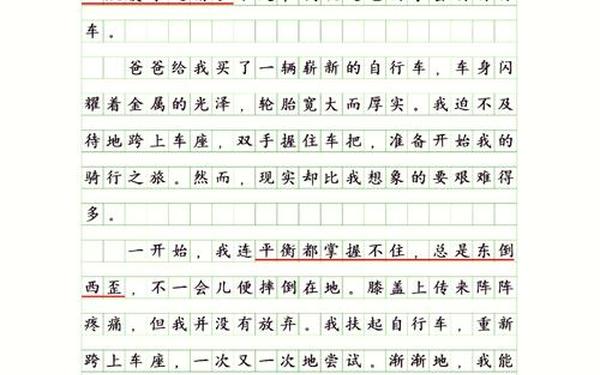 车。
爸爸给我买了一辆崭新的自行车，车身闪
耀着金属的光泽，轮胎宽大而厚实。我迫不及
待地跨上车座，双手握住车把，准备开始我的
骑行之旅。然而，现实却比我想象的要艰难得
多。
一开始，我连平衡都掌握不住，总是东倒
西歪，不一会儿便摔倒在地。膝盖上传来阵阵
疼痛，但我并没有放弃。我扶起自行车，重新
跨上车座，一次又一次地尝试。渐渐地，我能